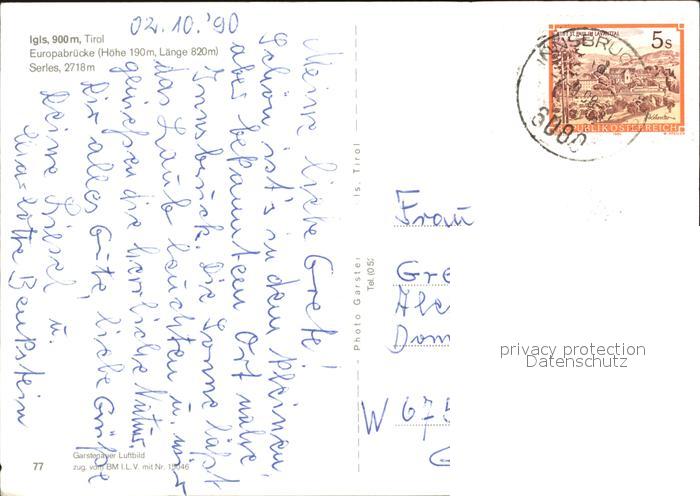 Igls, 900m, Tirol
Europabrücke (Höhe 190m, Länge 820m)
Serles, 2718m
02.10.'90
Meine liebe Grete!
Schön ist's in dem kleinen,
aber bekannten Ort nahe
Innsbruck. Die Sonne läßt
das Laub leuchten u. wir
genießen die herrliche Natur.
Dir alles Gute, liebe Grüße
Deine Liesel u.
Lisa-Lotte
77
Gartenauer Luftbild
zug. vom BM I.L.V. mit Nr. 15046
Photo Garster
ls. Tirol
Tel. (05
5 S
REPUBLIK ÖSTERREICH
INNSBRUCK
6080
Frau
Gre
Ale
Dom
W 675
privacy protection
Datenschutz